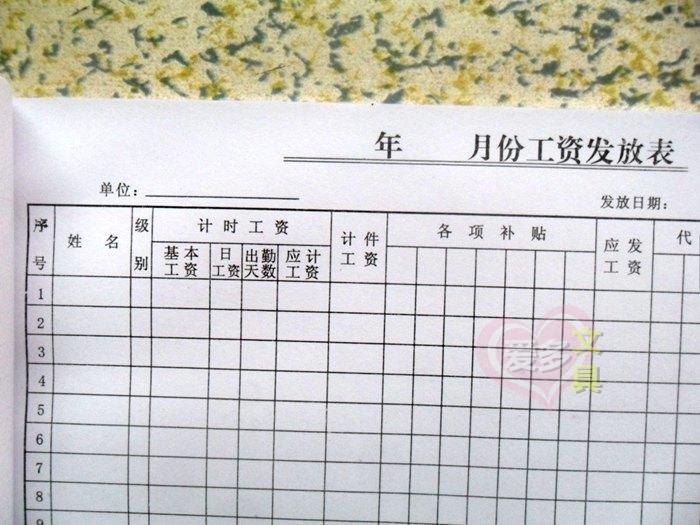 年 月份工资发放表
单位: 发放日期:
序号 姓名 级别 计时工资 计件工资 各项补贴 应发工资 代
基本工资 日工资 出勤天数 应计工资
1
2
3
4
5
6
7
8
9
爱多文具